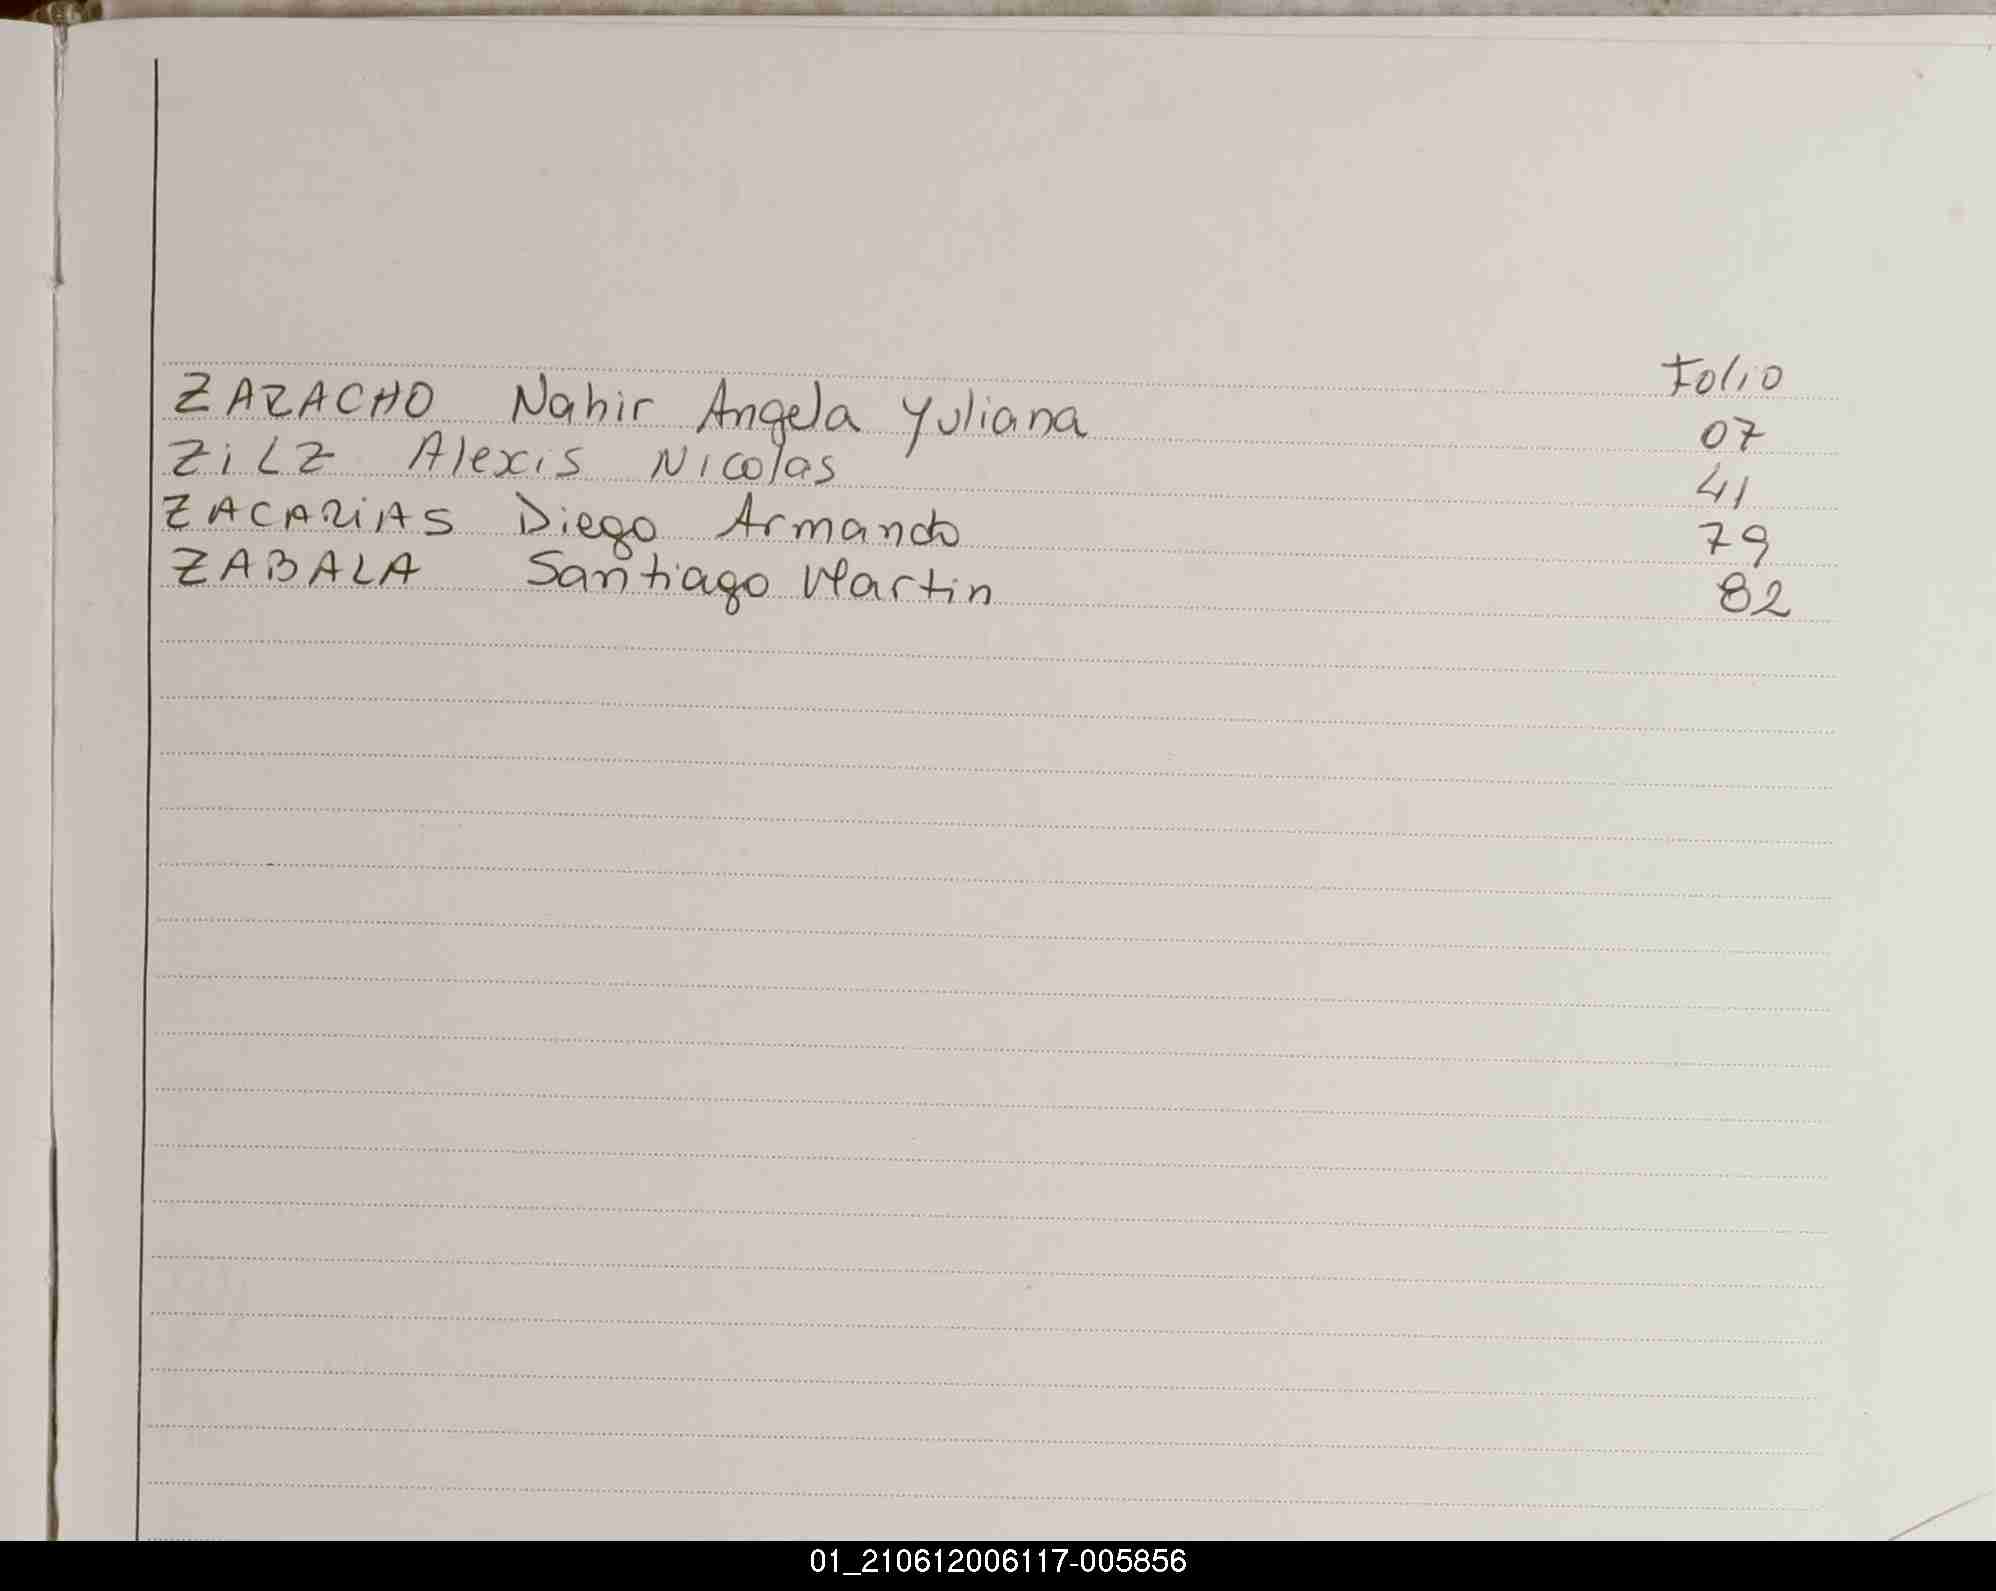 Folio
ZARACHO Nahir Angela Yuliana 07
ZiLZ Alexis Nicolas 41
ZACARiAS Diego Armando 79
ZABALA Santiago Martin 82
01_210612006117-005856